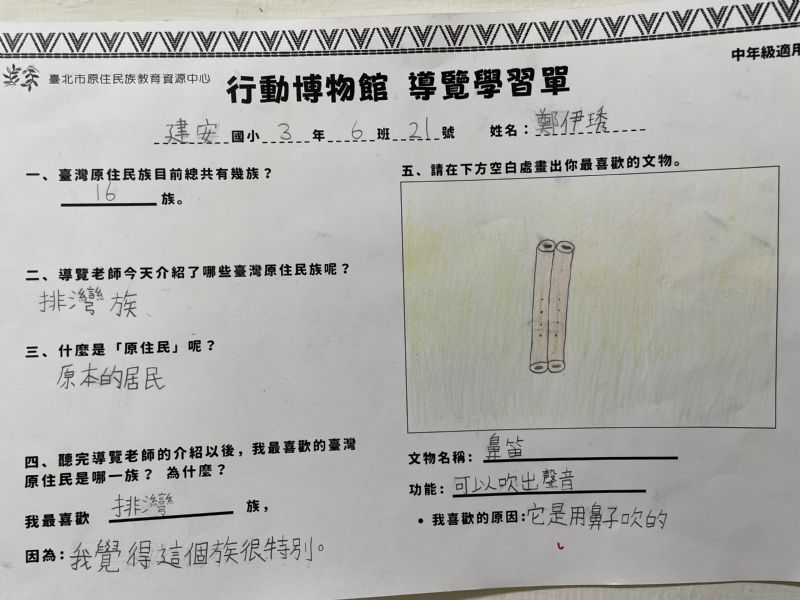 臺北市原住民族教育資源中心
行動博物館 導覽學習單
中年級適用
建安國小3年6班21號 姓名：鄭伊琇
一、臺灣原住民族目前總共有幾族？
16族。
二、導覽老師今天介紹了哪些臺灣原住民族呢？
排灣族、
三、什麼是「原住民」呢？
原本的居民
四、聽完導覽老師的介紹以後，我最喜歡的臺灣
原住民是哪一族？ 為什麼？
我最喜歡 排灣 族，
因為：我覺得這個族很特別。
五、請在下方空白處畫出你最喜歡的文物。
文物名稱：鼻笛
功能：可以吹出聲音
• 我喜歡的原因：它是用鼻子吹的